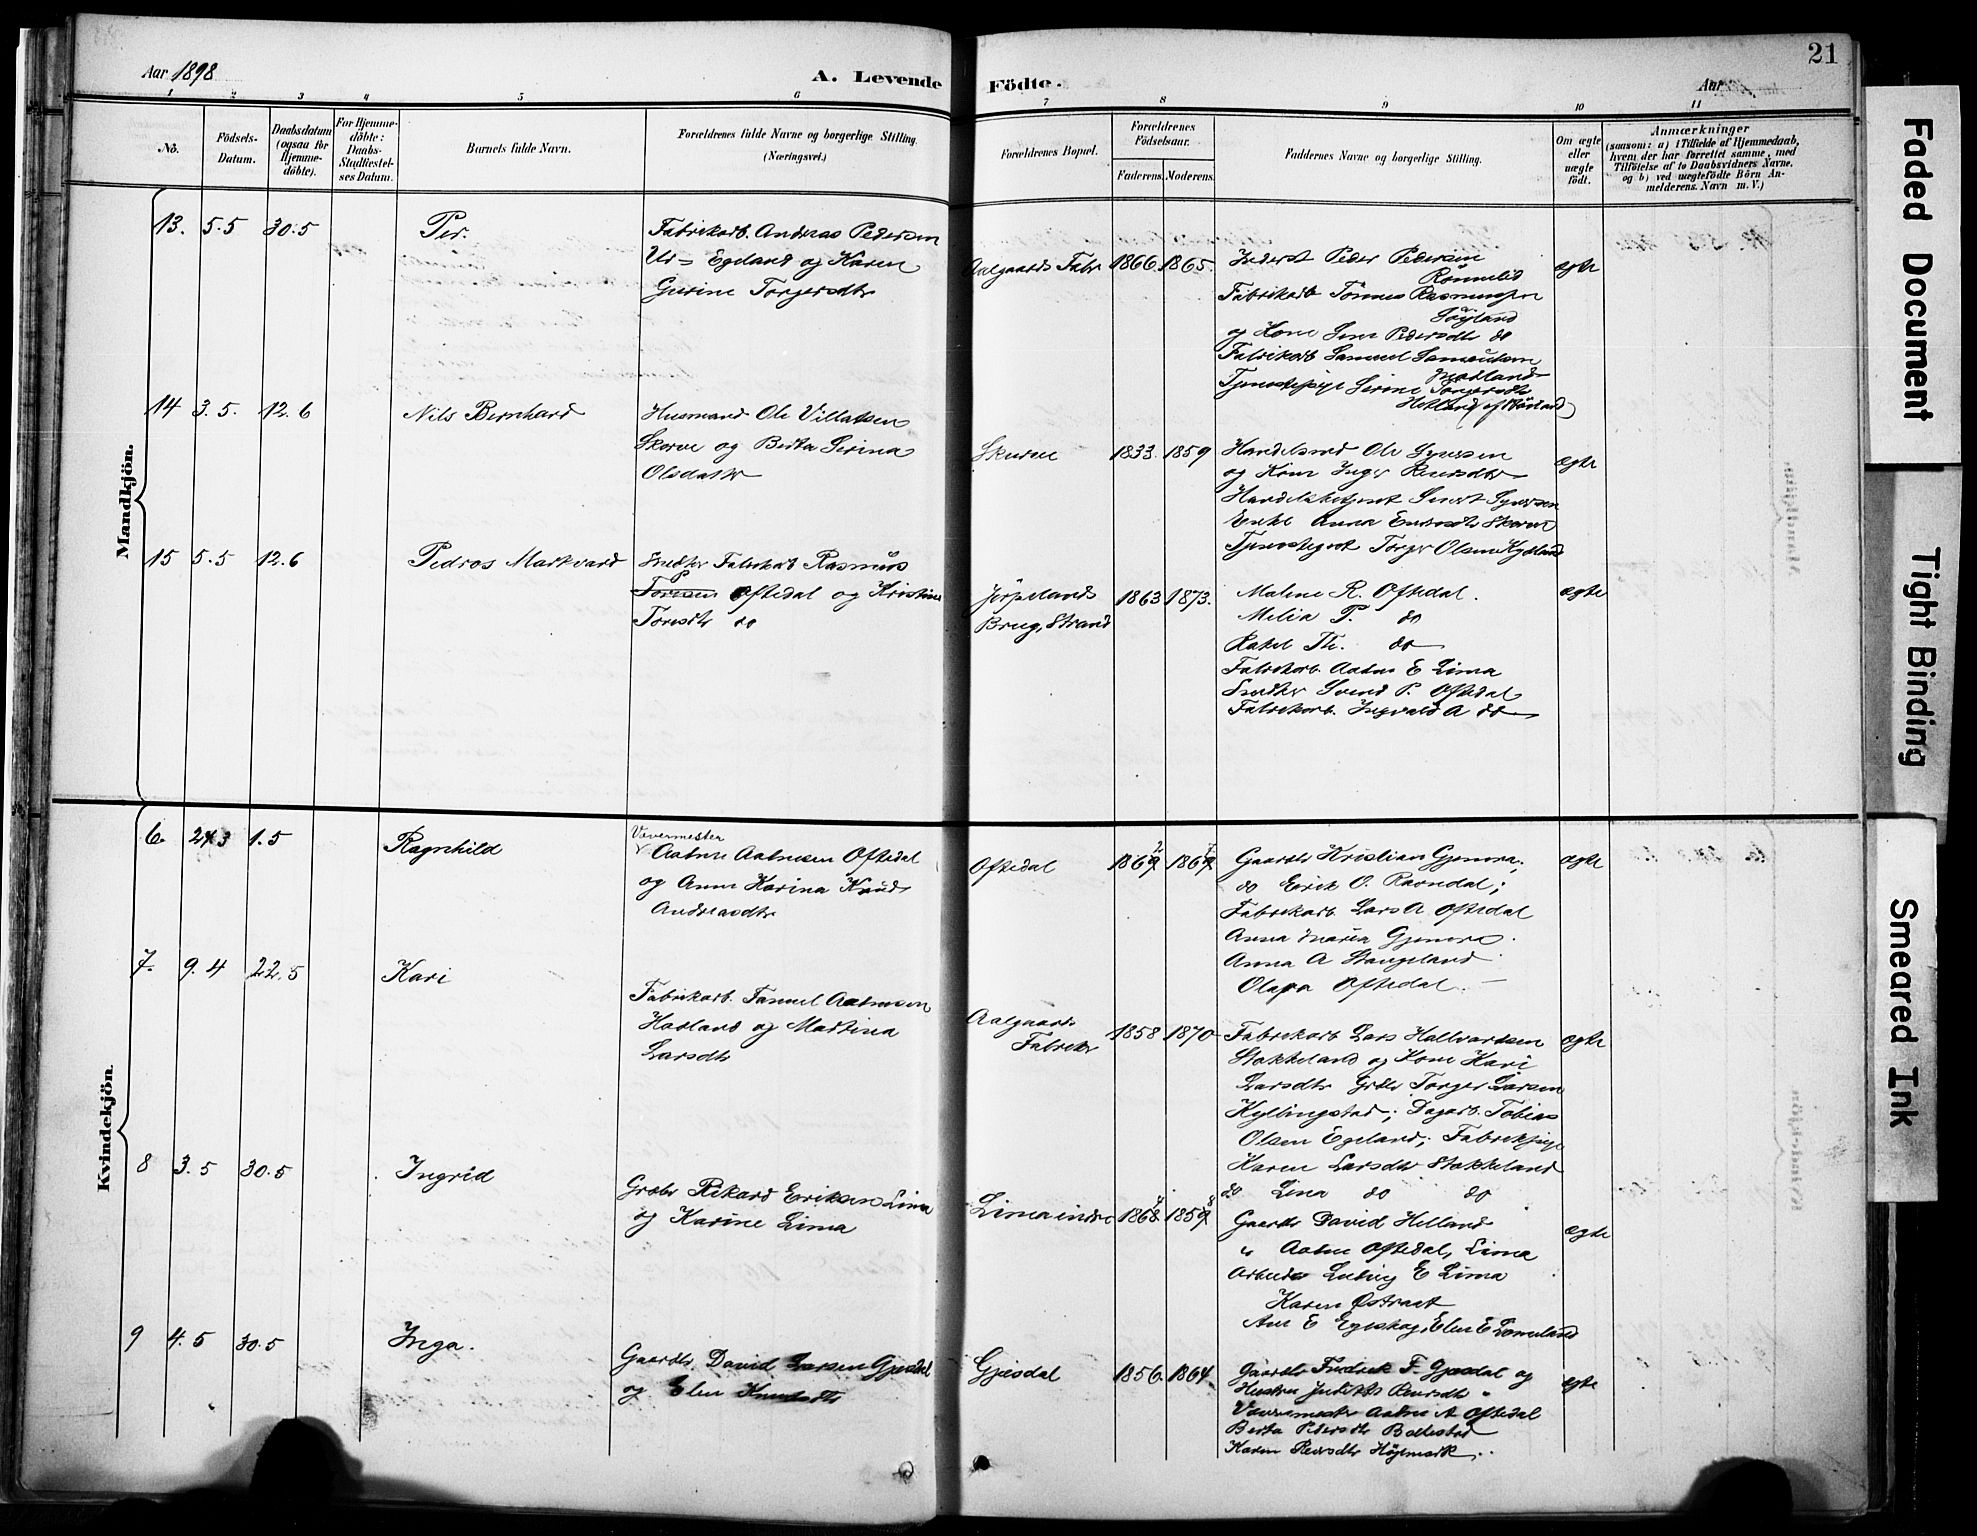 Aar 1898
A. Levende
Födte.
Aar
21
1
2
3
4
5
6
7
8
9
10
11
No.
Födsels-
Datum.
Daabsdatum
(ogsaa for
Hjemme-
döbte).
For Hjemme-
döbte:
Daabs-
Stadfæstel-
ses Datum.
Barnets fulde Navn.
Forældrenes fulde Navne og borgerlige Stilling
(Næringsvei.)
Forældrenes Bopæl.
Forældrenes
Födselsaar.
Faderens.
Moderens.
Faddernes Navne og borgerlige Stilling.
Om ægte
eller
uægte
födt.
Anmærkninger
(saasom: a) i Tilfælde af Hjemmedaab,
hvem der har forrettet samme, med
Tilföielse af to Daabsvidners Navne.
og b) ved uægtefödte Börn An-
melderens Navn m. V.)
Mandkjön.
13. 5.5 30.5 Per.
Fabrikarb. Andreas Pedersen
Egeland og Karen
Gurine Torgersdtr
Aalgaards Fabr 1866. 1865.
Inderst Peder Pedersen
Rönnelid
Fabrikarb Tönnes Rasmussen
Söyland
og Kone Pedersdtr do
Fabrikarb Samuel
Madland
Tjenestepige Serine Torgersdtr
Hetland
ægte
14 3.5. 12.6 Nils Bernhard
Husmand Ole Villatsen
Skurve og Berta Serina
Olsdatter
Skurve 1833. 1859
Ole Syversen
og Kone Inger
Syversen
Enke Anna Skurve
Torger Olsen Kydland
ægte
15 5.5 12.6 Pedros Markvard
Smed Fabrikarb Rasmus
Oftedal og Kristine
do
Jörpelands
Brug, Strand
1863 1873.
Malene R. Oftedal.
Melia T. do
Rakel Th. do
Fabrikarb. Aatne E Lima
Svend P. Oftedal
Fabrikarb. Ingvald A do
ægte
Kvindekjön.
6. 1.5 Ragnhild
Vævermester
Aatne Aatnesen Oftedal
og Anna Karina
Andreasdtr
Oftedal
Gaardbr Kristian Gjenra;
do Eirik O. Ravndal;
Fabrikarb. Lars A Oftedal
Anna Maria
Anna A Stangeland
Oftedal.
ægte
7. 9.4 22.5 Kari
Fabrikarb. Samuel Aatnesen
Havland og Martina
Larsdtr
Aalgaards
Fabrikr
1858 1870
Fabrikarb Lars Hallvardsen
Stokkeland og Kone Kari
Larsdtr Grdbr Torger Larsen
Kyllingstad; Dagarb. Tobias
Olsen Egeland; Fabrikpige
Karen Larsdtr Stokkeland
do Lina do do
ægte
8 3.5 30.5 Ingrid
Grdbr Rikard Eriksen Lima
og Karine Lima
Lima indre
Gaardbr David Helland
" Aatne Oftedal, Lima
Arbeider Ludvig E Lima
Karen Østraat
Ane E Egeskog, Elen E
ægte
9 4.5 30.5 Inga.
Gaardbr David Larsen Gjesdal
og Elen Knutsdtr
Gjesdal 1856. 1864.
Gaardbr Fredrik F Gjesdal og
Hustru Judith "
Vævermester Aatne A Oftedal
Berta Pedersdtr Bollestad
Karen
ægte
Faded Document
Tight Binding
Smeared Ink